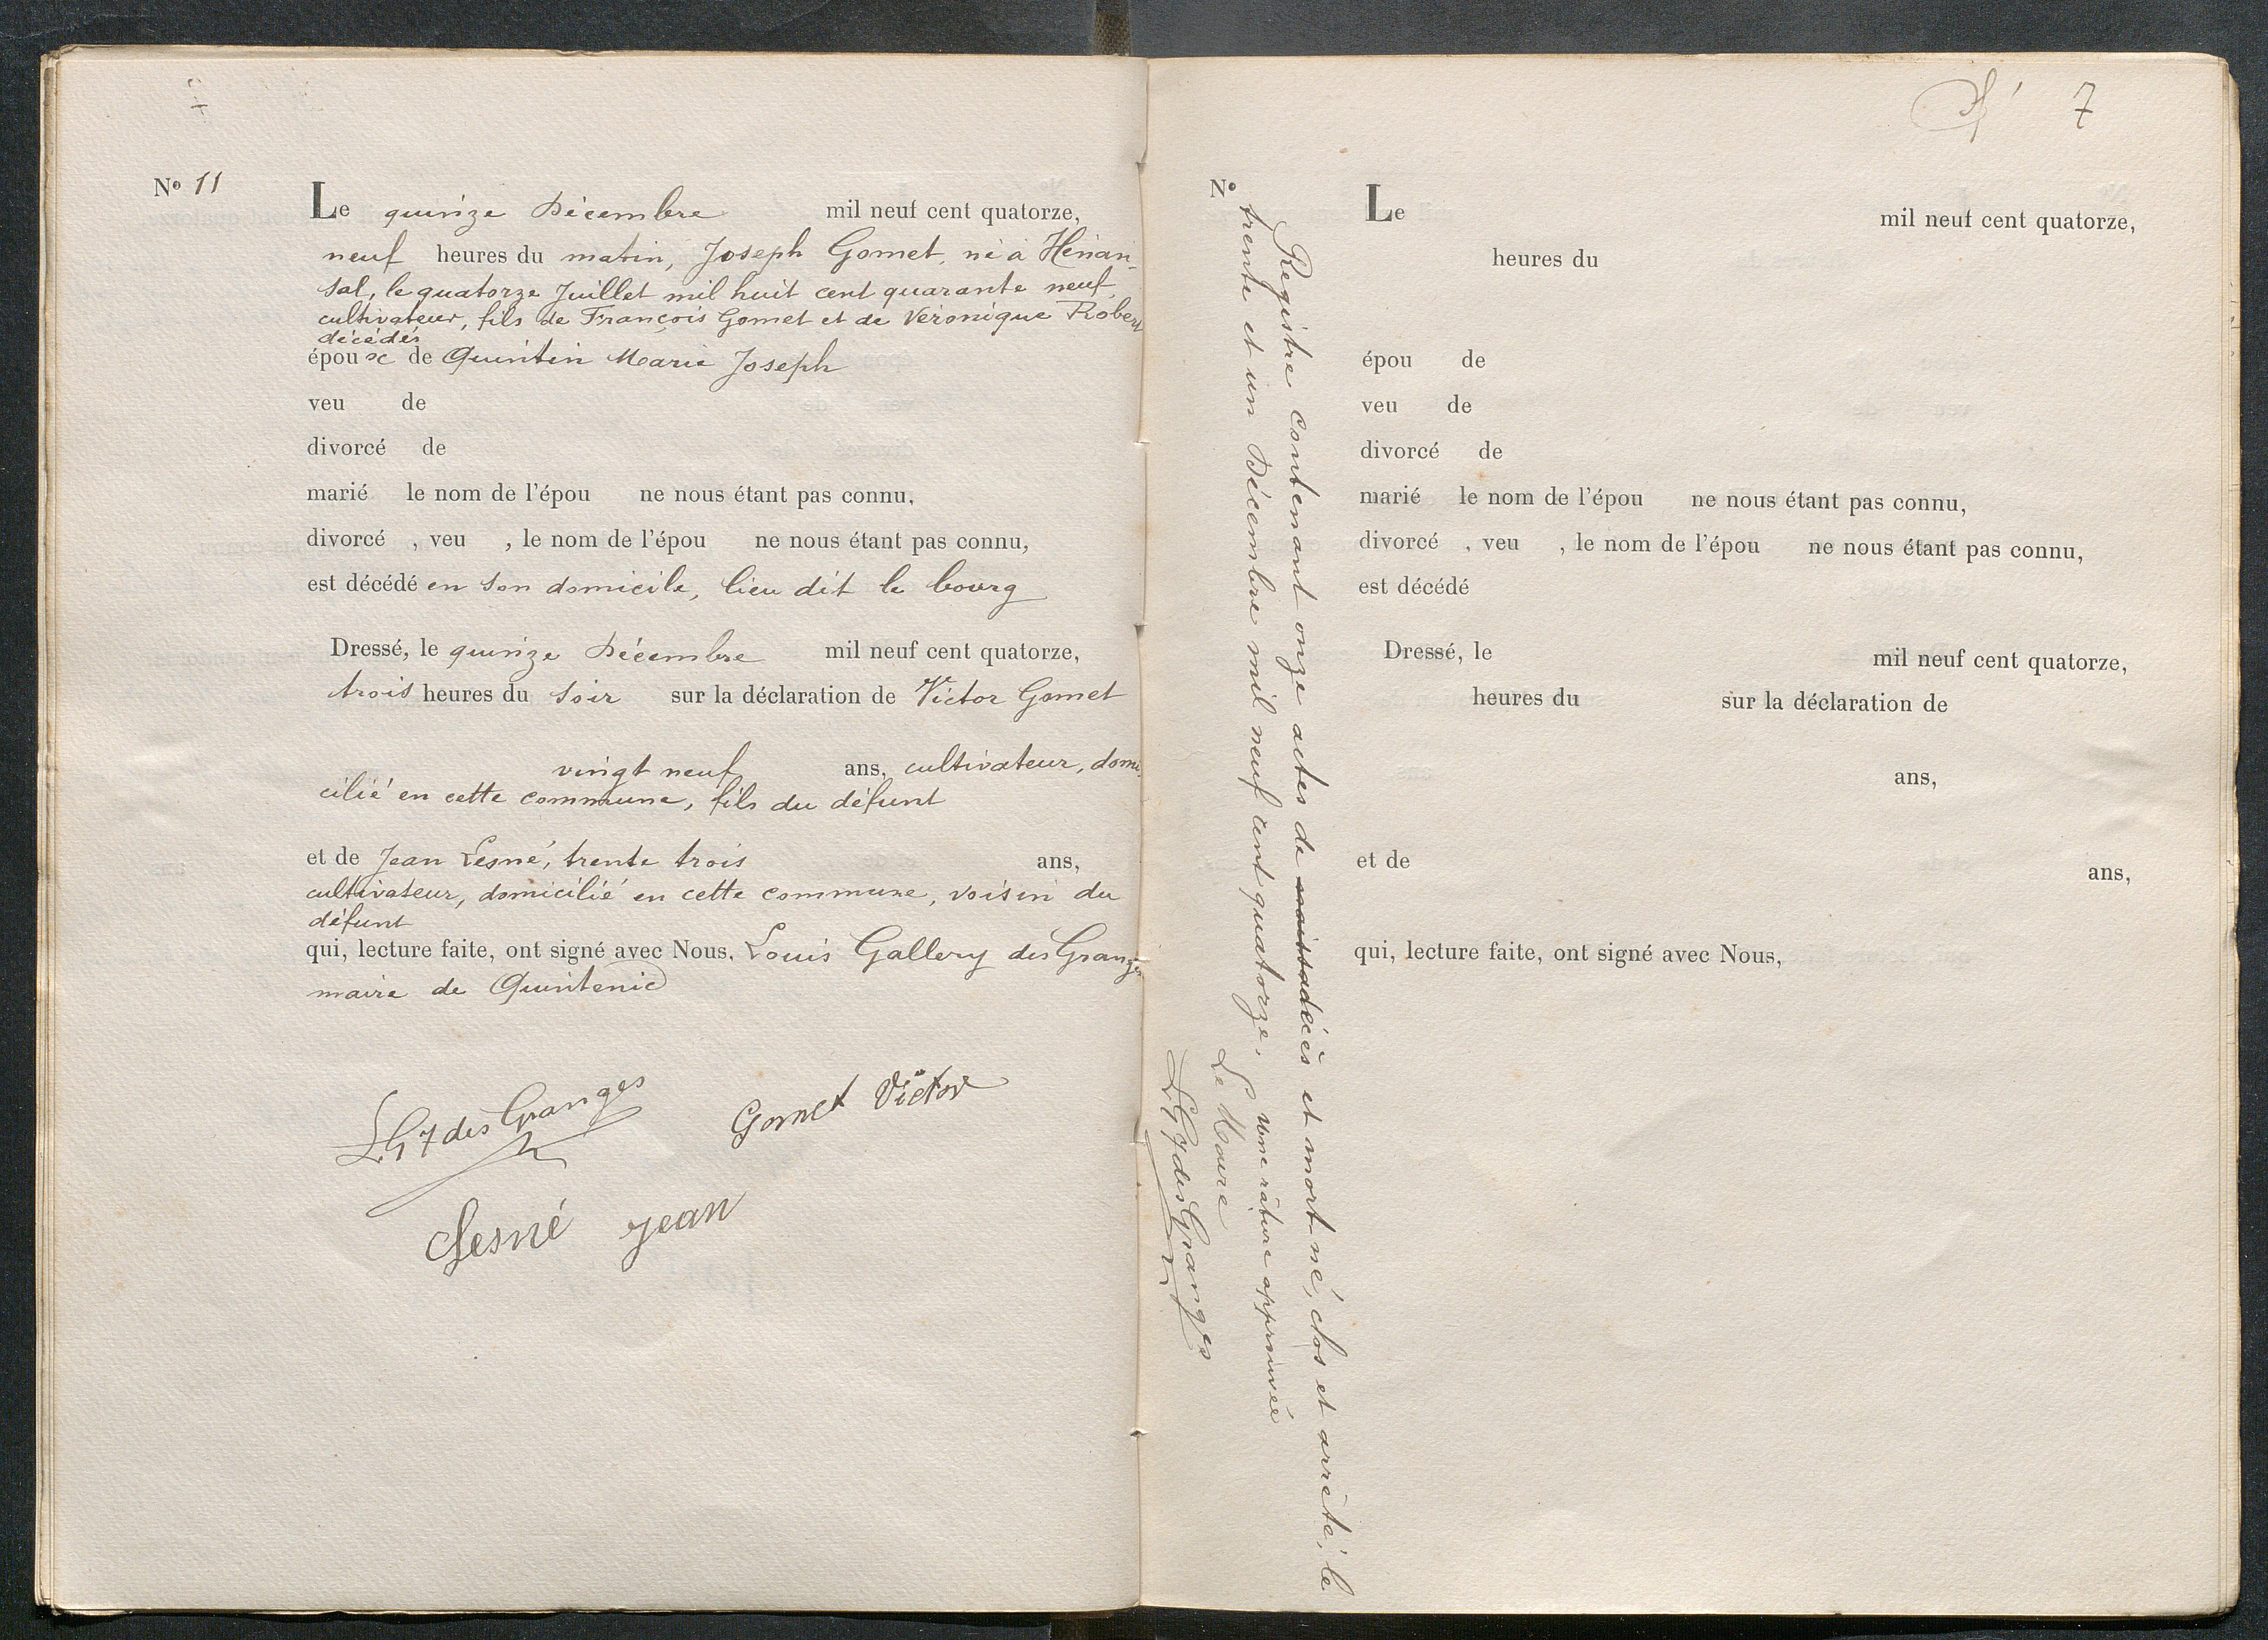 N° 11
Le quinze Décembre mil neuf cent quatorze,
neuf heures du matin, Joseph Gomet, né à Hénan-
sal, le quatorze Juillet mil huit cent quarante neuf,
cultivateur, fils de François Gomet et de Véronique Robert
décédés
époux de Quintin Marie Joseph
veu de
divorcé de
marié le nom de l'épou ne nous étant pas connu,
divorcé , veu , le nom de l'épou ne nous étant pas connu,
est décédé en son domicile, lieu dit le bourg
Dressé, le quinze Décembre mil neuf cent quatorze,
trois heures du soir sur la déclaration de Victor Gomet
vingt neuf ans, cultivateur, domi-
cilié en cette commune, fils du défunt
et de Jean Lesné, trente trois ans,
cultivateur, domicilié en cette commune, voisin du
défunt
qui, lecture faite, ont signé avec Nous, Louis Gallery des Granges
maire de Quintenic
LGy des Granges
Gomet Victor
Lesné Jean
7
N°
Le mil neuf cent quatorze,
heures du
épou de
veu de
divorcé de
marié le nom de l'épou ne nous étant pas connu,
divorcé , veu , le nom de l'épou ne nous étant pas connu,
est décédé
Dressé, le mil neuf cent quatorze,
heures du sur la déclaration de
ans,
et de ans,
qui, lecture faite, ont signé avec Nous,
Registre contenant onze actes de décès et mort-né, clos et arrêté, le
trente et un Décembre mil neuf cent quatorze, une râture approuvée
Le Maire
LGy des Granges